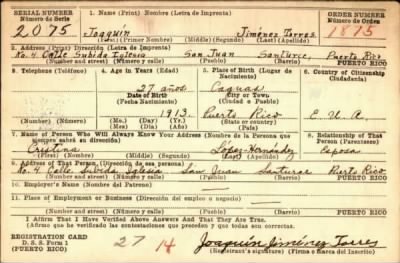 SERIAL NUMBER 1. Name (Print) Nombre (Letra de Imprenta) ORDER NUMBER
Número de Serie Número de Orden
2075 Joaquín Jiménez Torres 1815
(First) Primer Nombre (Middle) (Segundo) (Last) Apellido
2. Address (Print) Dirección (Letra de Imprenta)
No. 4 Calle Subida Iglesia San Juan Santurce, Puerto Rico
(Number and street) (Número y calle) (Pueblo) Barrio PUERTO RICO
8. Telephone (Teléfono) 4. Age in Years (Edad) 5. Place of Birth (Lugar de Nacimiento) 6. Country of Citizenship Ciudadanía
27 años Caguas
Date of Birth City or Town
(Fecha Nacimiento) (Ciudad o Pueblo)
1913 Puerto Rico E. U. A.
(Mo.) (Day) (Yr.) (State or country)
(Mes) (Día) (Año) (País)
7. Name of Person Who Will Always Know Your Address (Nombre de la Persona que siempre sabrá su dirección) 8. Relationship of That Person (Parentesco)
Cristina Lopez-Hernández Esposa
(First) (Nombre) (Middle) (Segundo) (Last) Apellido
9. Address of That Person (Dirección de esa persona)
No. 4 Calle Subida Iglesia San Juan Santurce Puerto Rico
(Number and street) (Número y calle) (Pueblo) (Barrio) PUERTO RICO
10. Employer's Name (Nombre del Patrono)
11. Place of Employment or Business (Dirección del empleo o negocio)
(Number and street) (Número y calle) (Pueblo) (Barrio) PUERTO RICO
I Affirm That I Have Verified Above Answers And That They Are True.
(Afirmo que he verificado las contestaciones que preceden y que todas son correctas.
REGISTRATION CARD
D. S. S. Form 1
(PUERTO RICO)
27 14 Joaquín Jiménez Torres
(Registrant's signature) (Firma o marca del Inscrito)